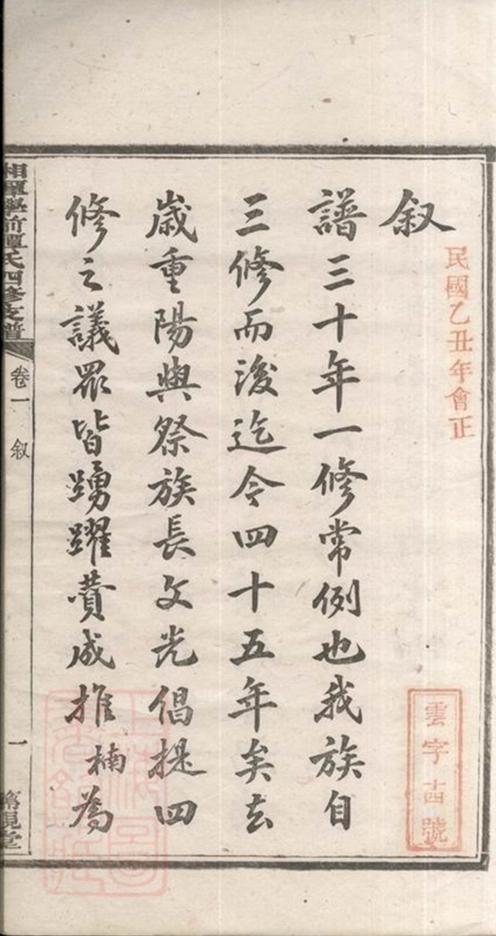 叙
譜三十年一修常例也我族自
三修而後迄今四十五年矣去
歲重陽與祭族長文光倡提四
修之議眾皆踴躍贊成推楠為
民國乙丑年會正
雲字古號
湘潭學前譚氏四修支譜
卷一
叙
一